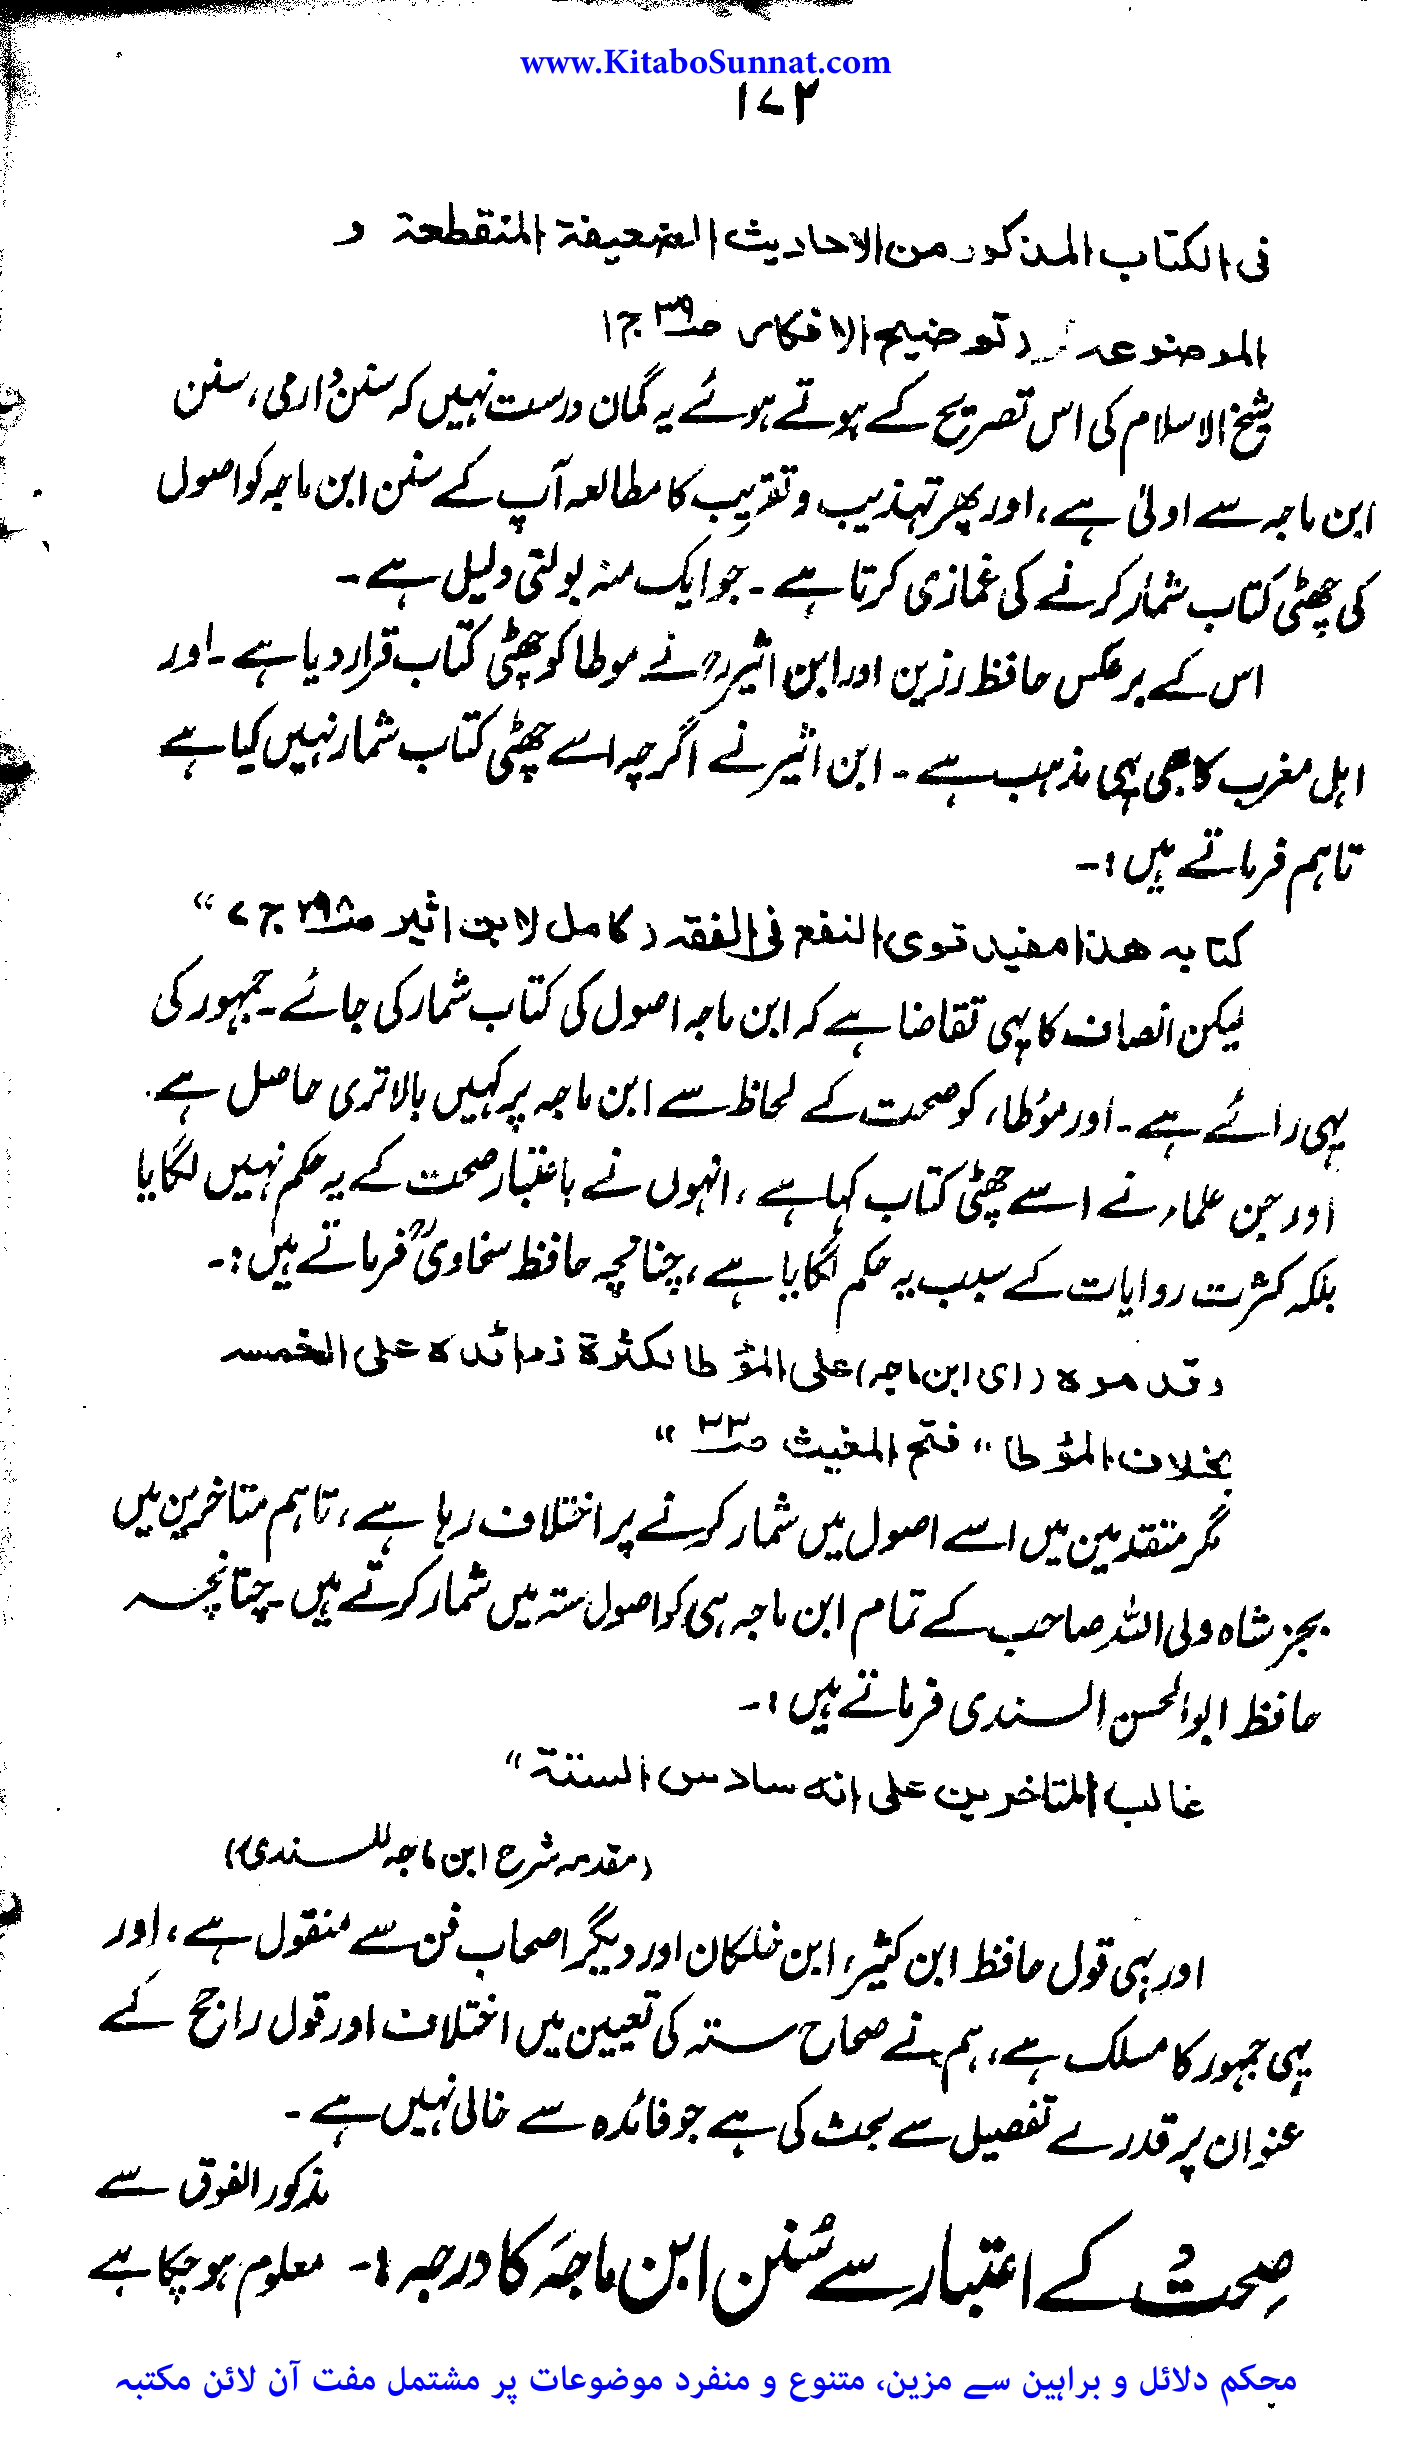 www.KitaboSunnat.com
۱۷۲
فی الکتاب المذکور من الاحادیث الضعیفة المنقطعة و
الموضوعہ (توضیح الافکار ص۳۹ ج۱
شیخ الاسلام کی اس تصریح کے ہوتے ہوئے یہ گمان درست نہیں کہ سنن دارمی، سنن
ابن ماجہ سے اولیٰ ہے، اور پھر تہذیب و تقریب کا مطالعہ آپ کے سنن ابن ماجہ کو اصول
کی چھٹی کتاب شمار کرنے کی غمازی کرتا ہے ۔ جو ایک منہ بولتی دلیل ہے ۔
اس کے برعکس حافظ رزین اور ابن اثیرؒ نے موطا کو چھٹی کتاب قرار دیا ہے ۔ اور
اہل مغرب کا بھی یہی مذہب ہے ۔ ابن اثیر نے اگرچہ اسے چھٹی کتاب شمار نہیں کیا ہے
تاہم فرماتے ہیں :۔
کتابہ ھذا مفید قوی النفع فی الفقہ (کامل لابن اثیر ص۲۹۸ ج ۷ "
لیکن انصاف کا یہی تقاضا ہے کہ ابن ماجہ اصول کی کتاب شمار کی جائے ۔ جمہور کی
یہی رائے ہے ۔ اور مؤطا، کو صحت کے لحاظ سے ابن ماجہ پر کہیں بالاتری حاصل ہے ۔
اور جن علماء نے اسے چھٹی کتاب کہا ہے ، انہوں نے باعتبار صحت کے یہ حکم نہیں لگایا
بلکہ کثرت روایات کے سبب یہ حکم لگایا ہے، چنانچہ حافظ سخاویؒ فرماتے ہیں :۔
وقدموہ (ای ابن ماجہ) علی المؤطا لکثرة زوائدہ علی الخمسہ
بخلاف المؤطا " فتح المغیث ص۳۳ "
مگر متقدمین میں اسے اصول میں شمار کرنے پر اختلاف رہا ہے، تاہم متاخرین میں
بجز شاہ ولی اللہ صاحب کے تمام ابن ماجہ ہی کو اصول ستہ میں شمار کرتے ہیں ۔ چنانچہ
حافظ ابوالحسن السندی فرماتے ہیں :۔
غالب المتاخرین علی انہ سادس الستة "
(مقدمہ شرح ابن ماجہ للسندی)
اور یہی قول حافظ ابن کثیر، ابن خلکان اور دیگر اصحاب فن سے منقول ہے ، اور
یہی جمہور کا مسلک ہے، ہم نے صحاح ستہ کی تعیین میں اختلاف اور قول راجح کے
عنوان پر قدرے تفصیل سے بحث کی ہے جو فائدہ سے خالی نہیں ہے ۔
مذکور الفوق سے
صحت کے اعتبار سے سُنن ابن ماجہ کا درجہ :۔ معلوم ہو چکا ہے
محکم دلائل و براہین سے مزین، متنوع و منفرد موضوعات پر مشتمل مفت آن لائن مکتبہ